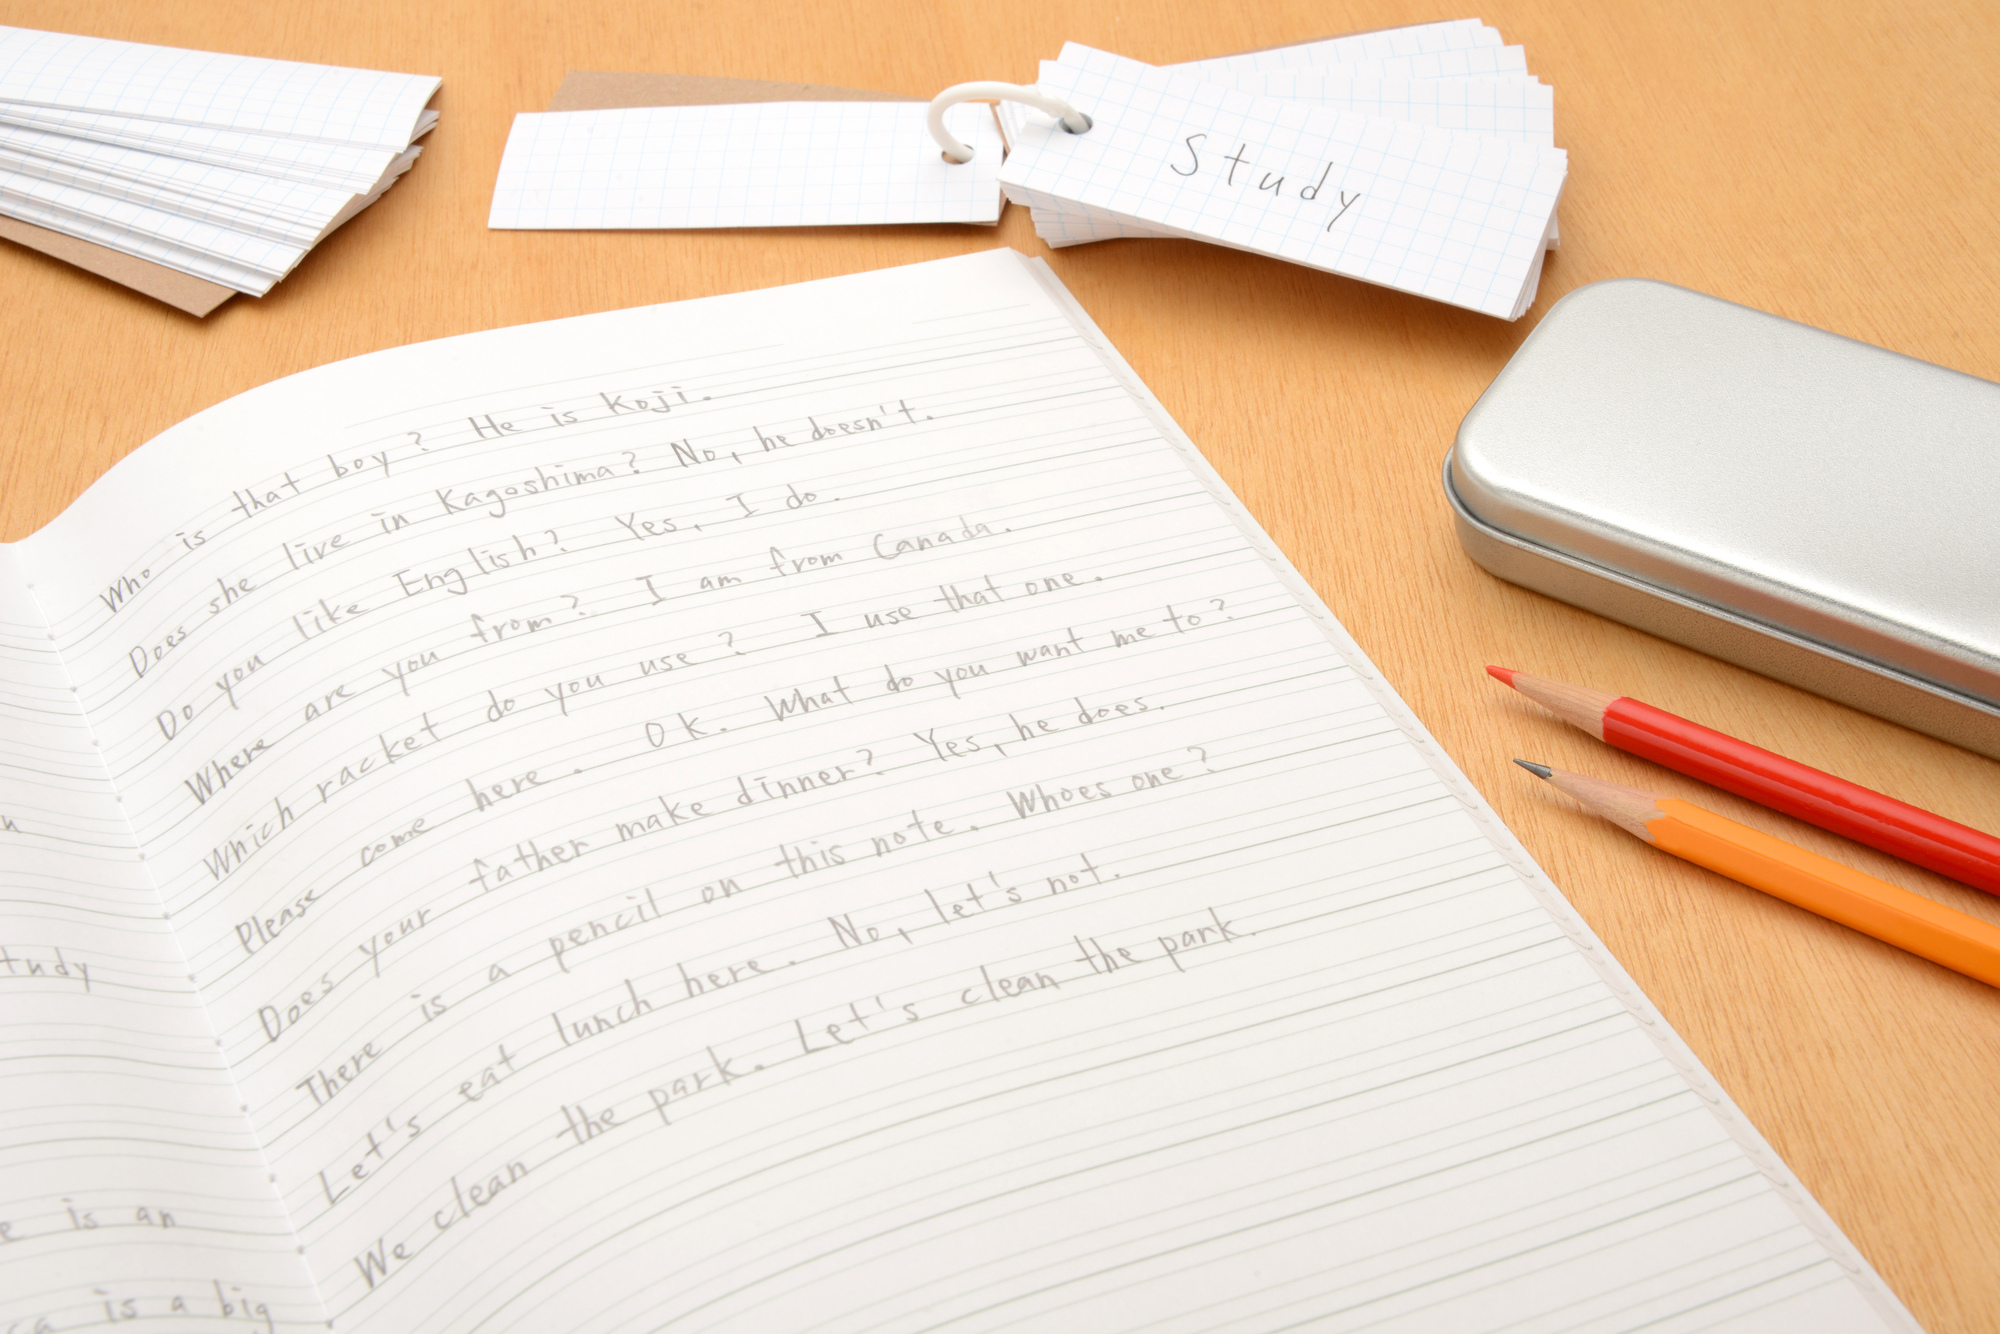 Study
Who is that boy? He is Koji.
Does she live in Kagoshima? No, he doesn't.
Do you like English? Yes, I do.
Where are you from? I am from Canada.
Which racket do you use? I use that one.
Please come here. Ok. What do you want me to?
Does your father make dinner? Yes, he does.
There is a pencil on this note. Whoes one?
Let's eat lunch here. No, let's not.
We clean the park. Let's clean the park.
tudy
is an
is a big